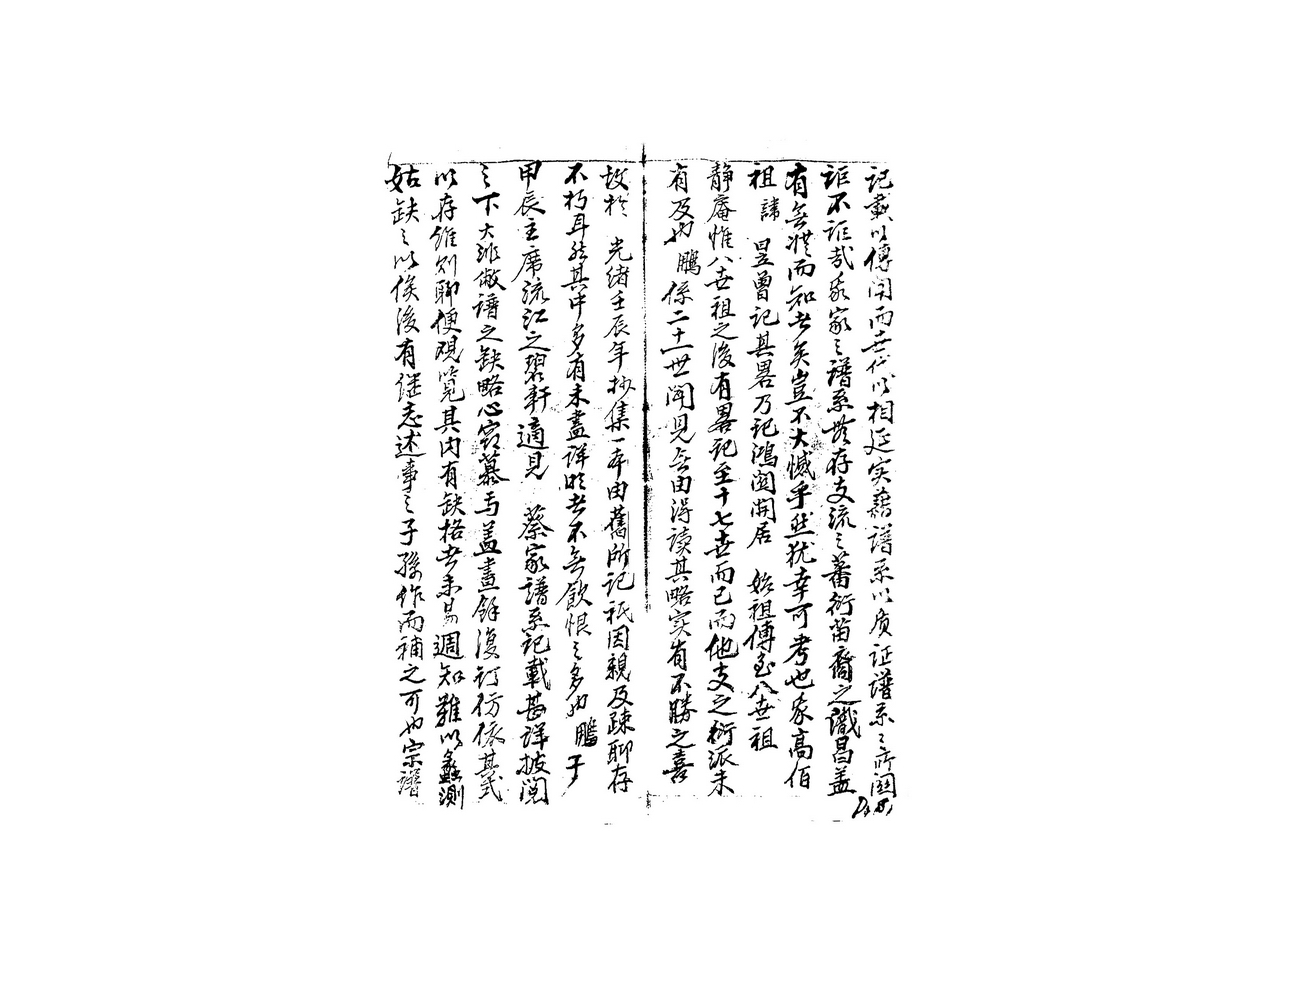 記載以傳聞而世代以相延实藉譜系以质証譜系之所關
詎不詎哉我家之譜系犹存支流之蕃衍苗裔之識昌盖
有無凭而知者矣豈不大憾乎然犹幸可考也家高伯
祖諱 昱曾記其畧乃記鴻閣開居 始祖傳至八世祖
静庵惟八世祖之後有畧記至十七世而已而他支之衍派未
有及也 鵬係二十一世闻見無由得读其略实有不勝之喜
故於 光緒壬辰年抄集一本由舊所記祇因親及疎聊存
不朽耳然其中多有未盡詳明者不無飲恨之多也 鵬于
甲辰主席流江之碧軒適見 蔡家譜系記載甚詳披閱
之下大非敝譜之缺略心窃慕焉盖畫餘復訂仿依其式
以存雏刻聊便观览其内有缺格者未易週知難以蠡測
姑缺之以俟後有继志述事之子孫作而補之可也宗譜